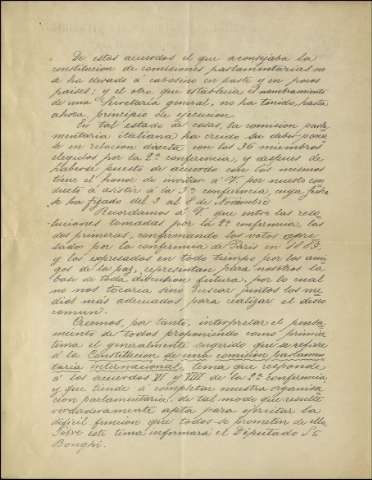 De estos acuerdos el que aconsejaba la
constitucion de comisiones parlamentarias no
se ha llevado á cabo sino en parte y en pocos
paises; y el otro que establecia el nombramiento
de una Secretaria general, no ha tenido hasta
ahora principio de ejecucion.
En tal estado de cosas, la comision parla-
mentaria italiana ha creido su deber poner-
se en relacion directa con los 36 miembros
elegidos por la 2ª conferencia, y despues de
haberse puesto de acuerdo con los mismos
tiene el honor de invitar á V. por nuestro con-
ducto á asistir á la 3ª conferencia cuya fecha
se ha fijado del 3 al 8 de Noviembre.
Recordamos á V. que entre las reso-
luciones tomadas por la 2ª conferencia, las
dos primeras, confirmando los votos expre-
sados por la conferencia de Paris en 1889,
y los expresados en todo tiempo por los ami-
gos de la paz, representan para nosotros la
base de toda discusion futura, por lo cual
no nos tocaria sino buscar juntos los me-
dios más adecuados para realizar el deseo
comun.
Creemos, por tanto, interpretar el pensa-
miento de todos proponiendo como primer
tema el generalmente sugerido que se refiere
á la Constitucion de una comision parlamen-
taria internacional, tema que responde
á los acuerdos VI y VIII de la 2ª conferencia
y que tiende á completar nuestra organiza-
cion parlamentaria, de tal modo que resulte
verdaderamente apta para ejercitar la
dificil funcion que todos se prometen de ella.
Sobre este tema informará el Diputado Sr.
Bonghi.